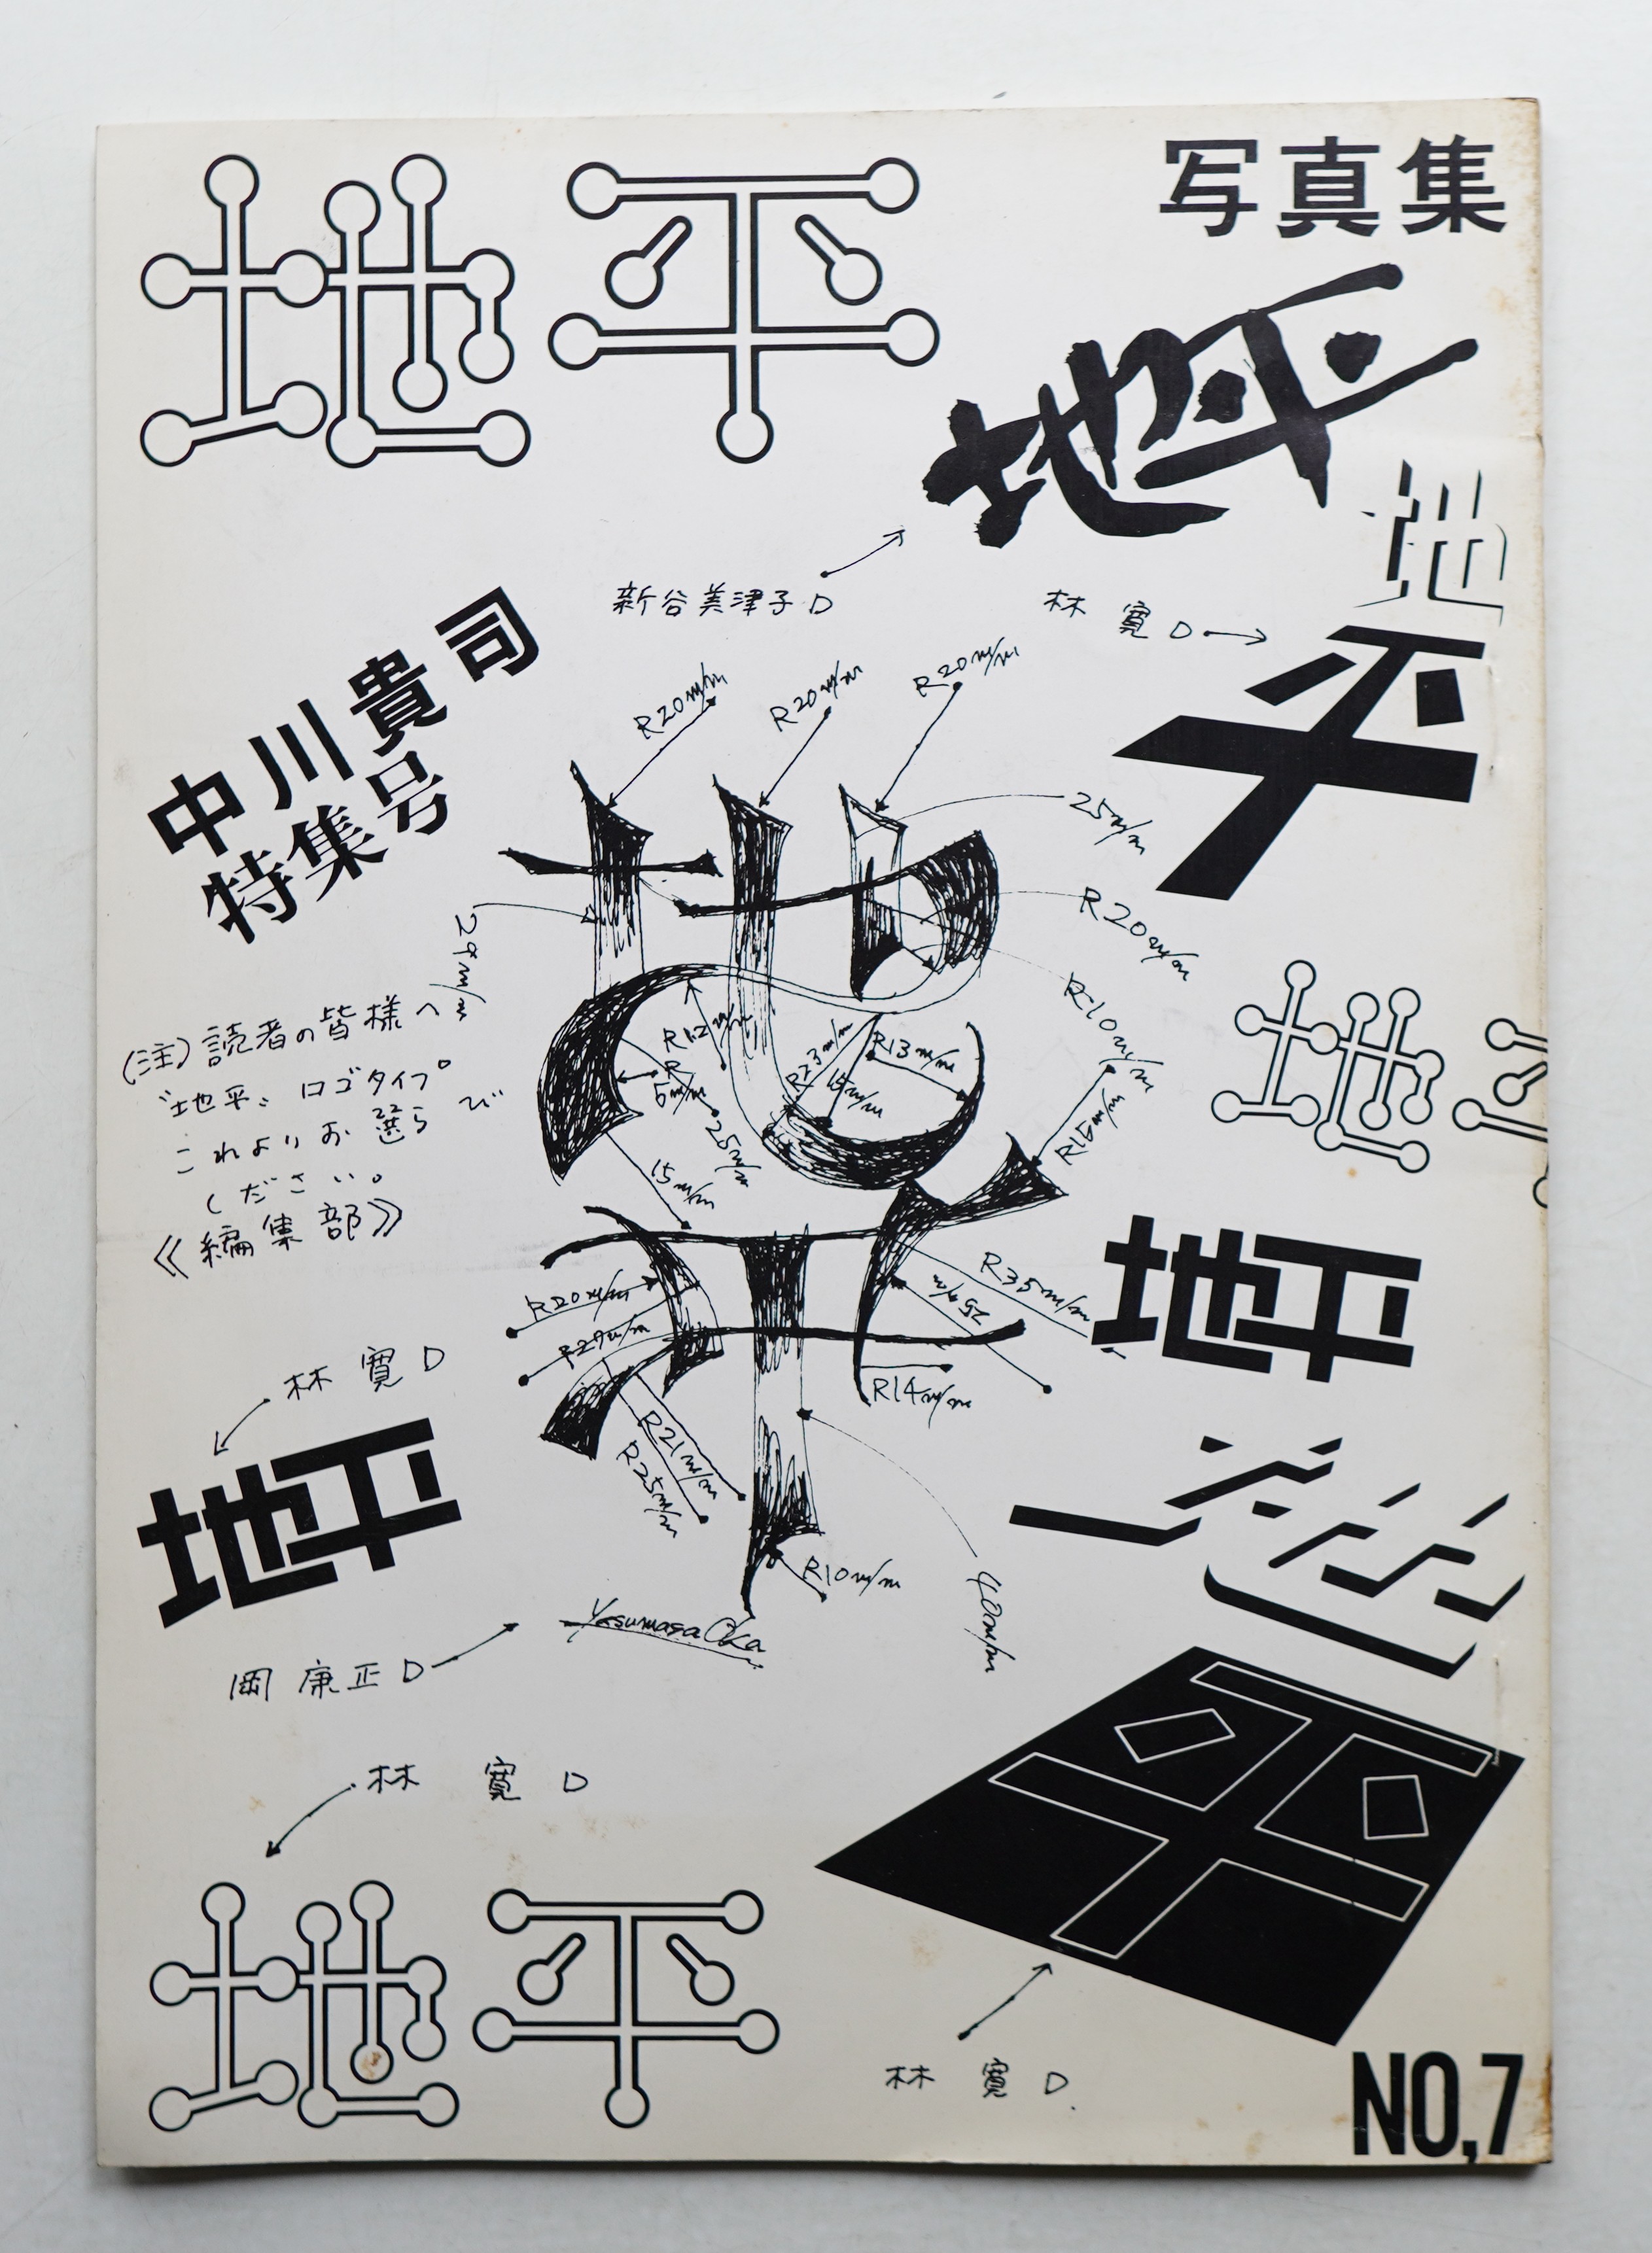 地平
写真集
地平
新谷美津子D
林 寛D
地
平
中川貴司
特集号
R20m/m
R20m/m
R20m/m
25m/m
R20m/m
R10m/m
地平
(注)読者の皆様へ
〝地平〟ロゴタイプ。
これよりお選らび
ください。
《編集部》
R12m/m
R23m/m
R13m/m
15m/m
R
5m/m
25m/m
15m/m
R15m/m
地平
R20m/m
R35m/m
25m/m
R14m/m
R21m/m
R25m/m
R10m/m
40m/m
地
平
林 寛D
地平
地平
Yasumasa Oka
岡 康正D
林 寛 D
地平
林 寛 D.
NO,7